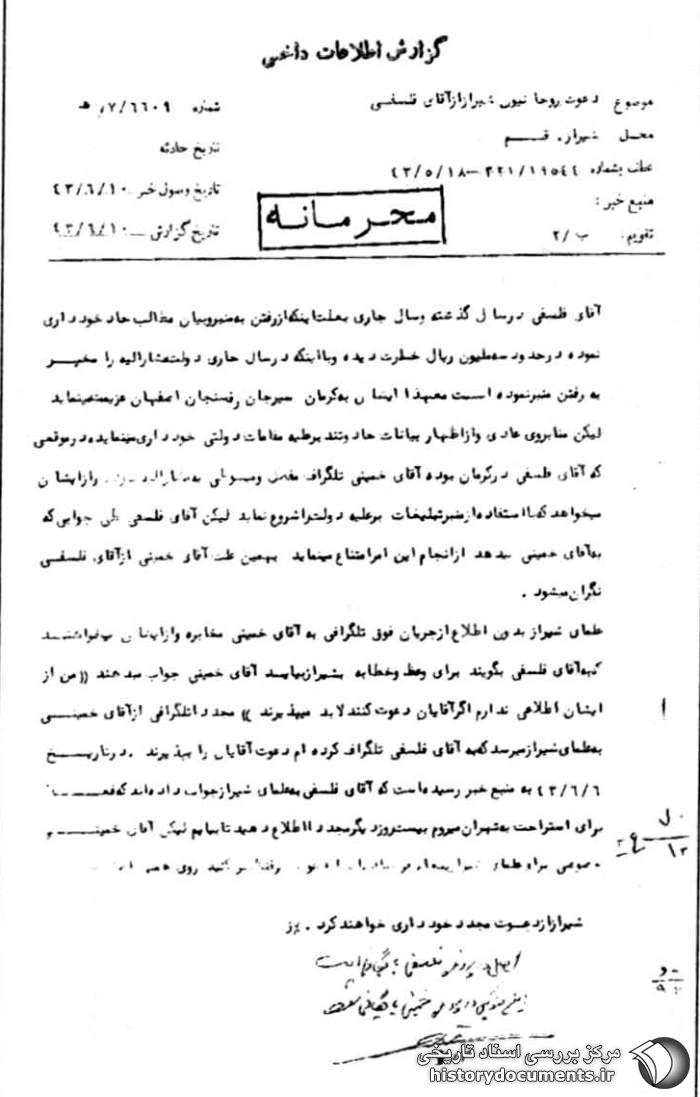 گزارش اطلاعات داخلی
موضوع دعوت روحانیون شیراز از آقای فلسفی
شماره ۶۶۰۹/۷ ه
محل شیراز. قم
تاریخ حادثه
عطف بشماره ۳۲۱/۱۹۵۴۴ -۴۳/۵/۱۸
تاریخ وصول خبر ۴۳/۶/۱۰
منبع خبر:
تاریخ گزارش ۴۳/۶/۱۰
تقویم: ب/۲
محرمانه
آقای فلسفی در سال گذشته و سال جاری بعلت اینکه از رفتن به منبر و بیان مطالب حاد خودداری
نموده در حدود سه ملیون ریال خسارت دیده و با اینکه در سال جاری دولت مشارالیه را مخیر
به رفتن منبر نموده است معهذا ایشان به کرمان سیرجان رفسنجان اصفهان عزیمت مینماید
لیکن منابر وی عادی و از اظهار بیانات حاد و تند بر علیه مقامات دولتی خودداری مینماید در موقعی
که آقای فلسفی در کرمان بوده آقای خمینی تلگراف مفصل و مبسوطی به مشارالیه و از ایشان
میخواهد که با استفاده از منبر تبلیغات بر علیه دولت را شروع نماید لیکن آقای فلسفی طی جوابی که
به آقای خمینی میدهد از انجام این امر امتناع مینماید بهمین علت آقای خمینی از آقای فلسفی
نگران میشود .
علمای شیراز بدون اطلاع از جریان فوق تلگرافی به آقای خمینی مخابره و از ایشان میخواهند
که به آقای فلسفی بگویند برای وعظ و خطابه بشیراز بیاید آقای خمینی جواب میدهند ((من از
ایشان اطلاعی ندارم اگر آقایان دعوت کنند لابد میپذیرند )) مجددا تلگرافی از آقای خمینی
به علمای شیراز میرسد که به آقای فلسفی تلگراف کرده ام دعوت آقایان را بپذیرند . در تاریخ
۴۳/۶/۶ به منبع خبر رسیده است که آقای فلسفی به علمای شیراز جواب داده اند که فعلا
برای استراحت به تهران میروم بیست روز دیگر مجددا اطلاع دهید تا بیایم لیکن آقای خمینی
خصوصی برای علمای روی همین
شیراز از دعوت مجدد خودداری خواهند کرد . برز
اصل در پرونده فلسفی بایگانی است
در پرونده خمینی بایگانی شود
۲۰
۱۲
مرکز بررسی اسناد تاریخی
historydocuments.ir